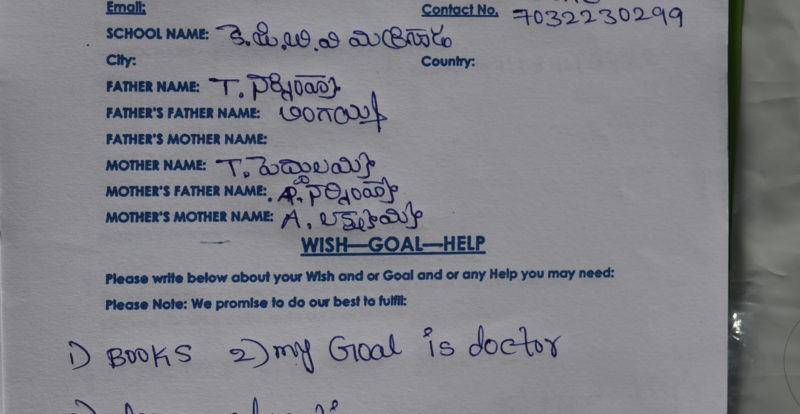 Email: Contact No. 7032230299
SCHOOL NAME: కె.జి.బి.వి
City: Country:
FATHER NAME: T. నర్సింహ్మా
FATHER'S FATHER NAME:
FATHER'S MOTHER NAME:
MOTHER NAME: T.
MOTHER'S FATHER NAME: A. నర్సింహ్మా
MOTHER'S MOTHER NAME: A. లక్ష్మమ్మ
WISH—GOAL—HELP
Please write below about your Wish and or Goal and or any Help you may need:
Please Note: We promise to do our best to fulfil:
1) BOOKS 2) my Goal is doctor